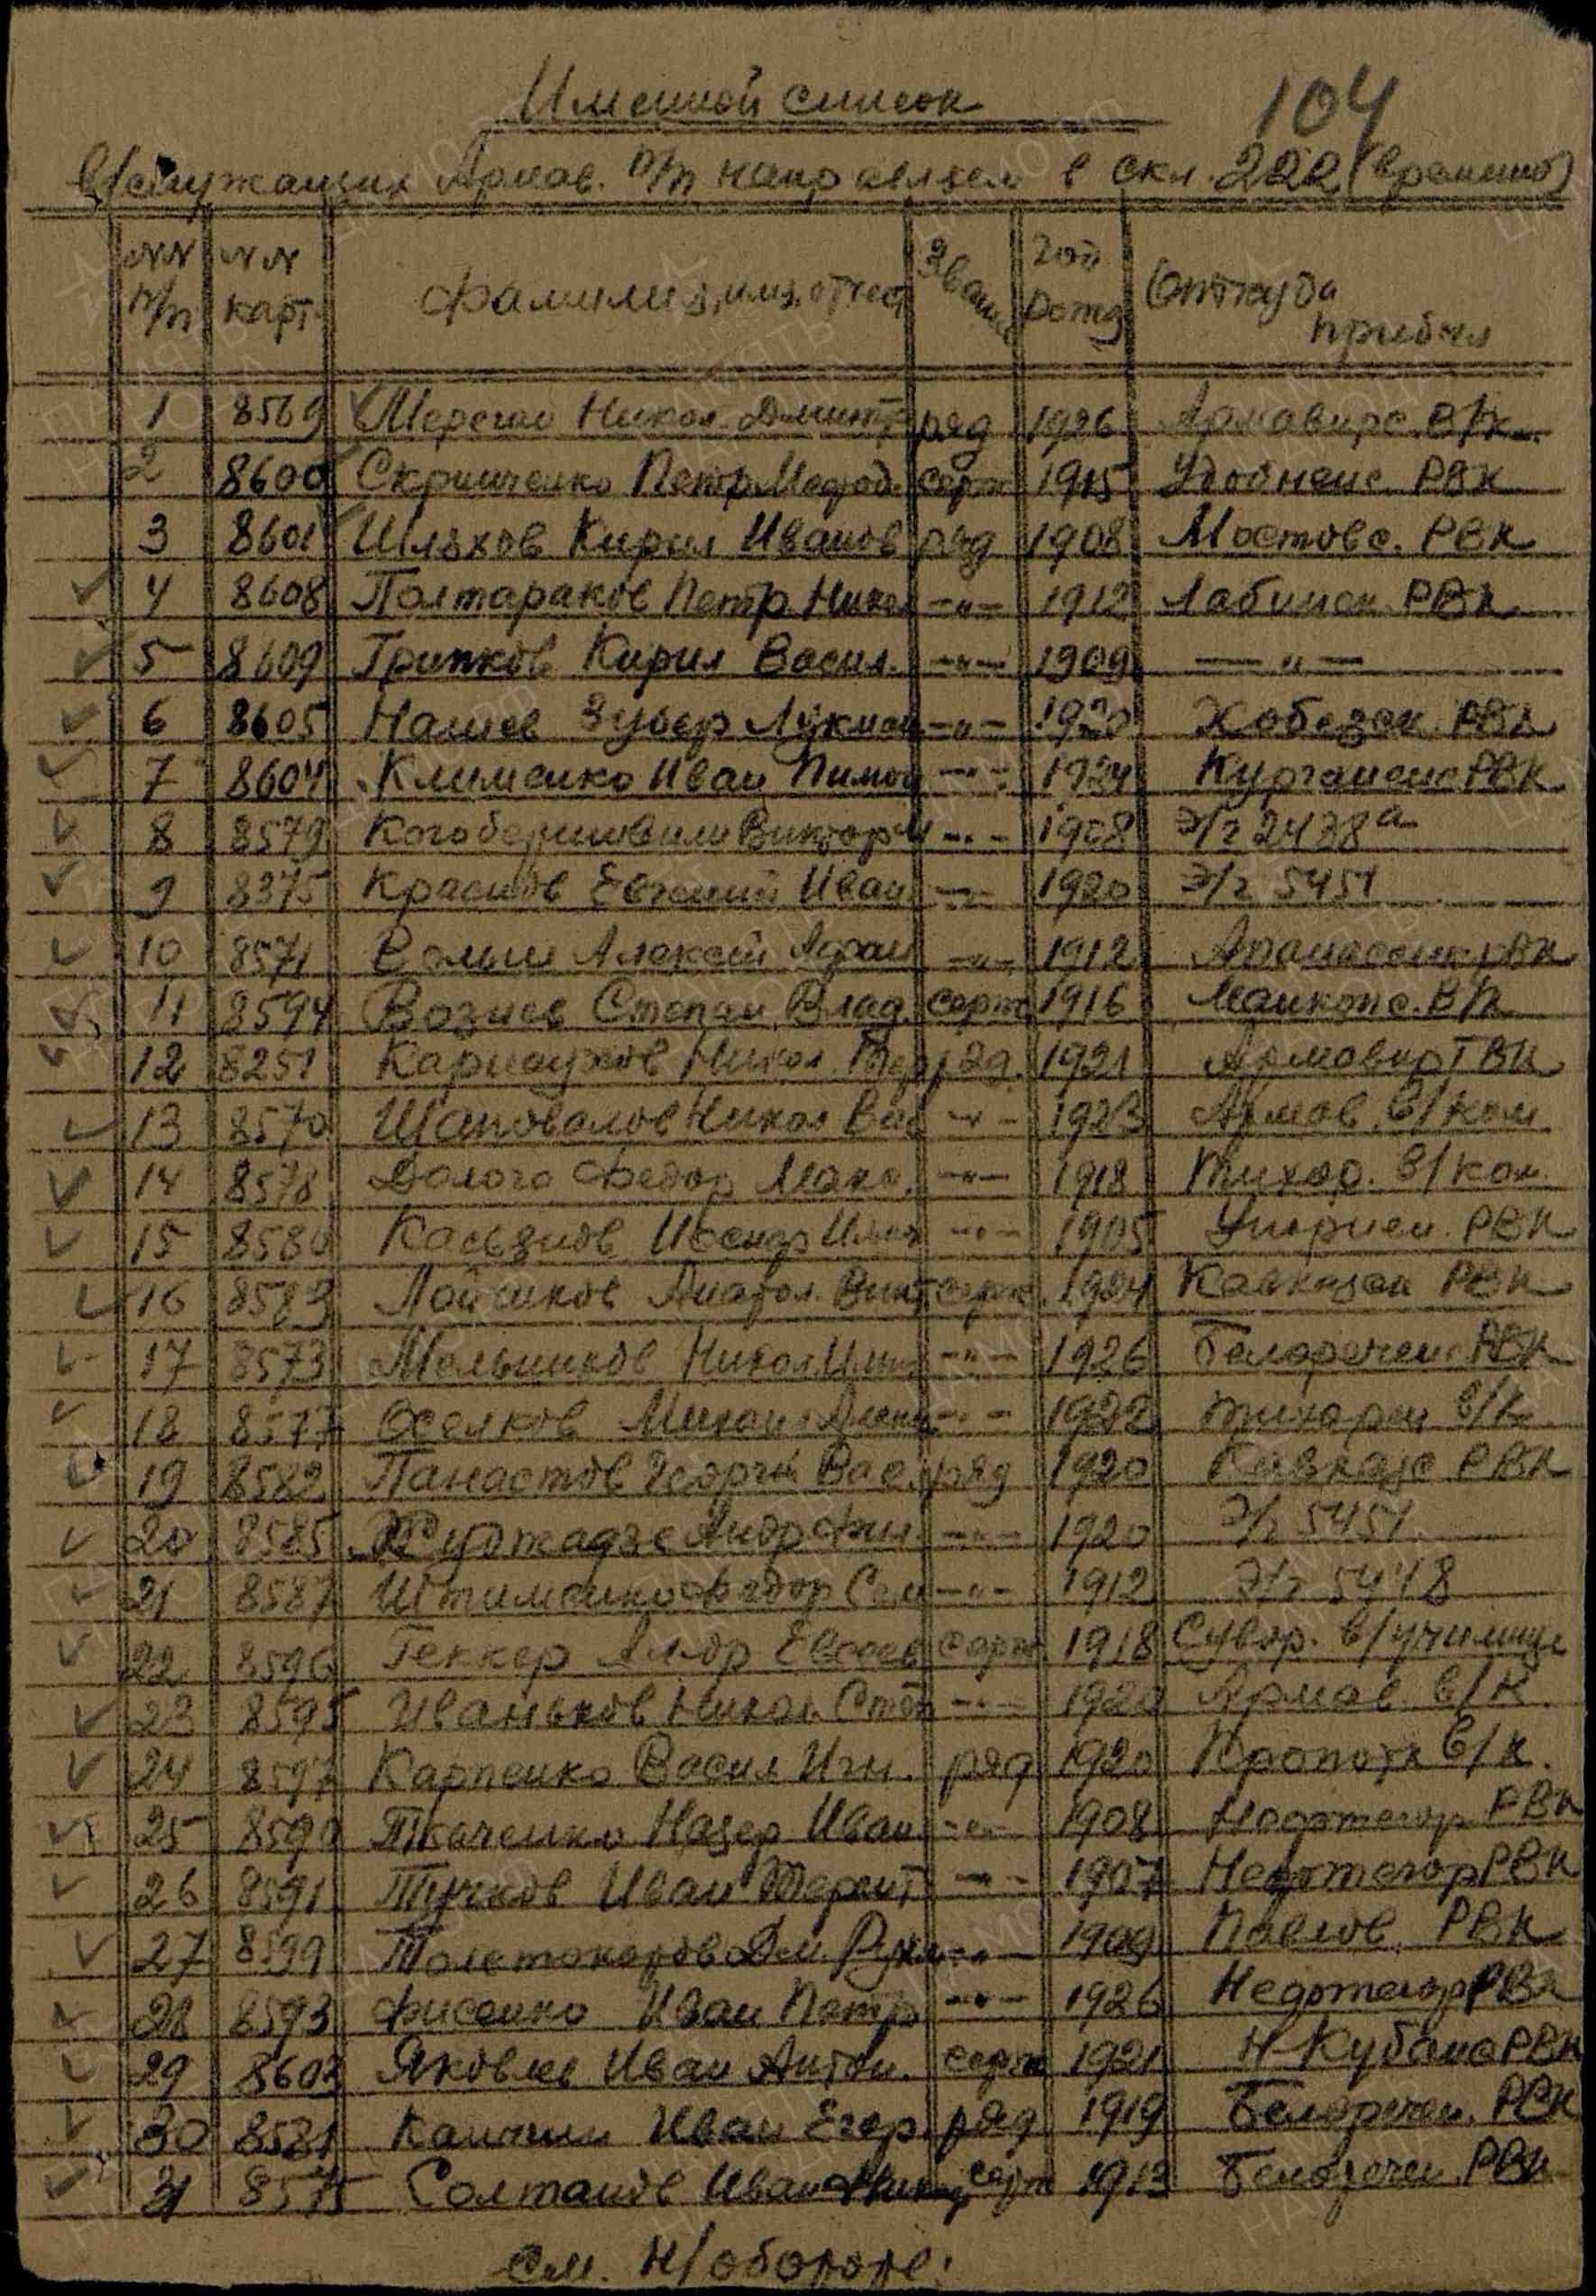 Именной список
104
в/служащих Армав. п/п направляем в скл. 222 (временно)
NN п/п NN карт. Фамилия, имя, отчес Звание год рожд Откуда прибыл
1 8569 Никол. Дмитр ряд 1926 Армавирс. В/К
2 8600 Петр Мефод. серж 1915 Удобненс. РВК
3 8601 Шляхов Кирил Иванов ряд 1908 Мостовс. РВК
4 8608 Полтараков Петр Никол -"- 1912 Лабинск РВК
5 8609 Грипков Кирил Васил. -"- 1909 -"-
6 8605 Зубер Лукман -"- 1920 Хабезск. РВК
7 8604 Клименко Иван Пимон -"- 1924 Курганенс РВК
8 8579 Виктор И -"- 1908 Э/г 2438а
9 8375 Краснов Евгений Иван -"- 1920 Э/г 5451
10 8571 Алексей Афан -"- 1912 Апанасенк РВК
11 8594 Возиев Степан Влад. серж 1916 Майкопс. В/К
12 8251 Карнаухов Никол. ряд. 1921 Армавир ГВК
13 8570 Шаповалов Никол Вас -"- 1923 Армав. в/ком
14 8578 Долога Федор Мака. -"- 1918 Тихор. в/ком.
15 8580 Касьянов -"- 1905 РВК
16 8583 Анатол. Викт серж. 1924 Кавказск РВК
17 8573 Мельников Никол -"- 1926 Белоречен. РВК
18 8577 Оселков Михаи. -"- 1922 Тихорец в/к.
19 8582 Панастов Георги Вас. ряд 1920 Кавказс РВК
20 8585 Андр Фил. -"- 1920 Э/г 5451
21 8587 Штименко Федор Сем -"- 1912 Э/г 5448
22 8596 Геккер Ал-др Евсеев серж. 1918 Сувор. в/училище
23 8595 Иваньков Никол. Степ -"- 1920 Армав. в/к.
24 8597 Карпенко Васил Игн. ряд 1920 Кропотк в/к.
25 8590 Ткаченко Назер Иван -"- 1908 Нефтегор РВК
26 8591 Тучков Иван Терент -"- 1907 Нефтегор РВК
27 8599 Толстокоров Дм. -"- 1909 Павлов. РВК
28 8593 Фисенко Иван Петр -"- 1926 Нефтегор РВК
29 8603 Яковлев Иван Антон. серж 1921 Н-Кубанс РВК
30 8581 Иван Егор. ряд 1919 Белоречен. РВК
31 8575 Солтанов Иван серж 1913 Белоречен. РВК
см. н/обороте!